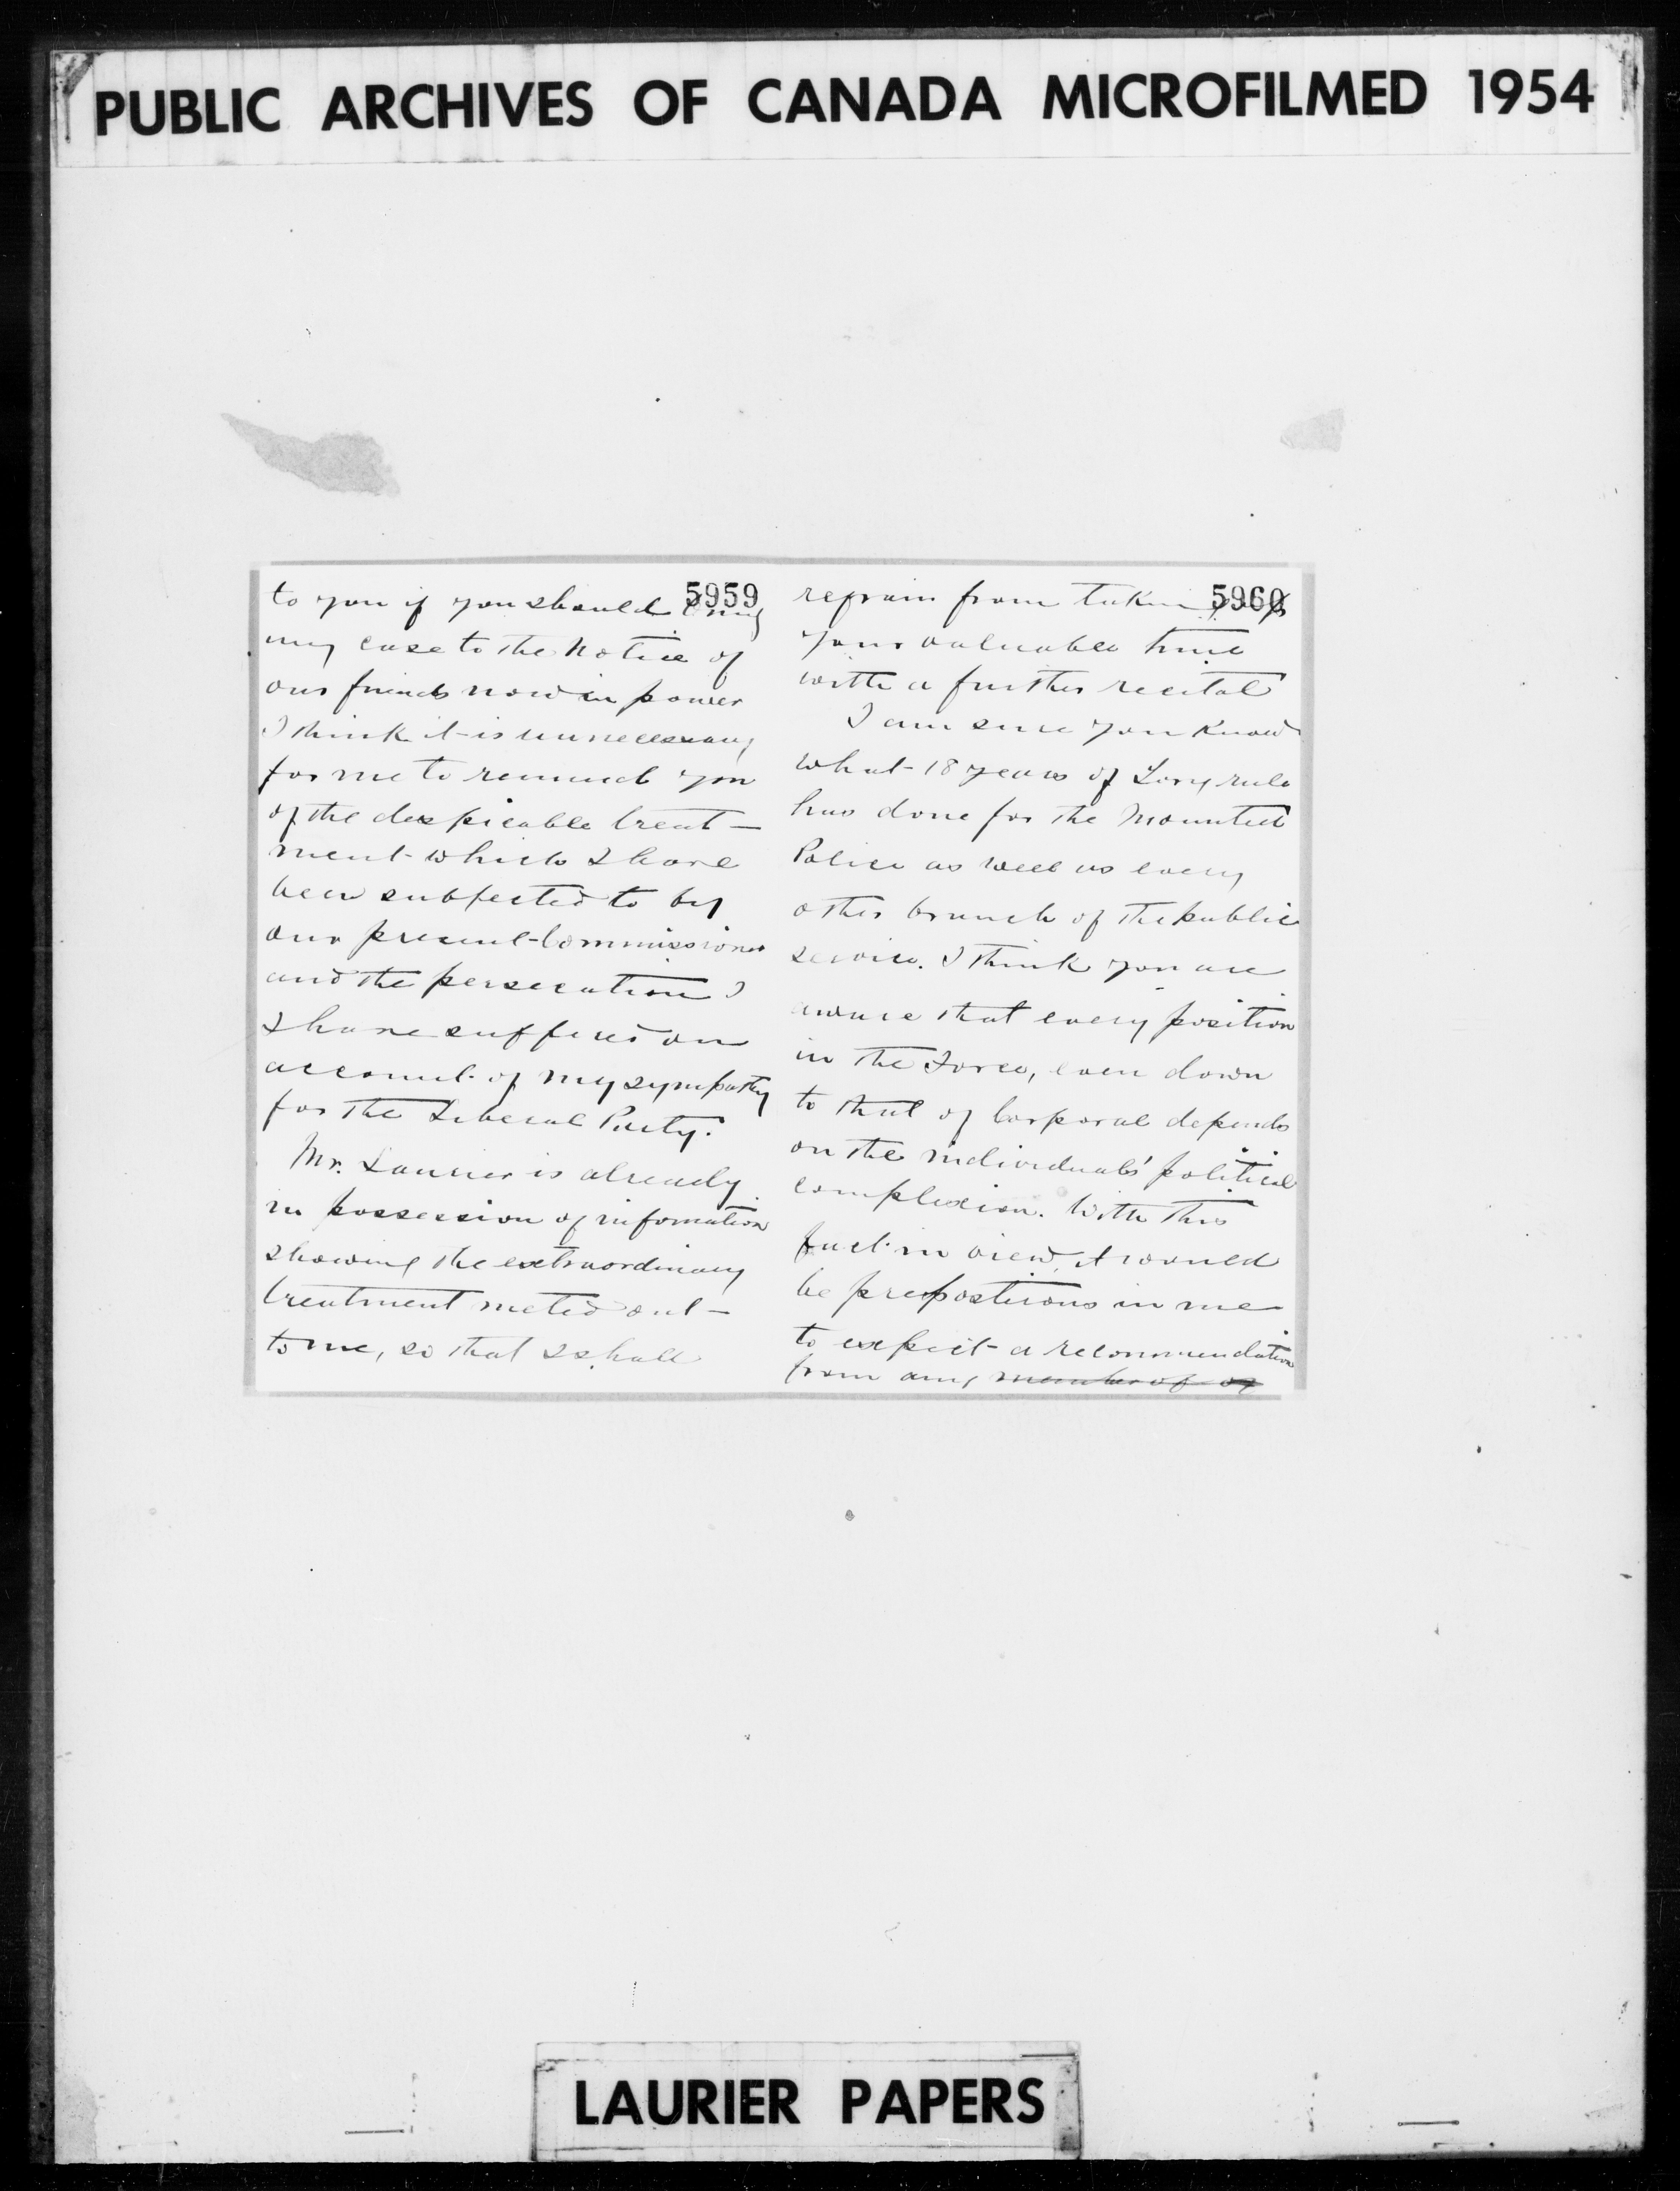 PUBLIC ARCHIVES OF CANADA MICROFILMED 1954
5959
to you if you should bring
my case to the notice of
our friends now in power
I think it is unnecessary
for me to remind you
of the despicable treat-
ment which I have
been subjected to by
our present Commissioner
and the persecution I
I have suffered on
account of my sympathy
for the Liberal Party.
Mr. Laurier is already
in possession of infomation
showing the extraordinary
treatment meted out
to me, so that I shall
5960
refrain from taking up
your valuable time
with a further recital
I am sure you know
what 18 years of Tory rule
has done for the Mounted
Police as well as every
other branch of the public
service. I think you are
aware that every position
in the Force, even down
to that of Corporal depends
on the individuals' political
complexion. With this
fact in view, it would
be prepostirous in me
to expect a recommendation
from any member of of
LAURIER PAPERS